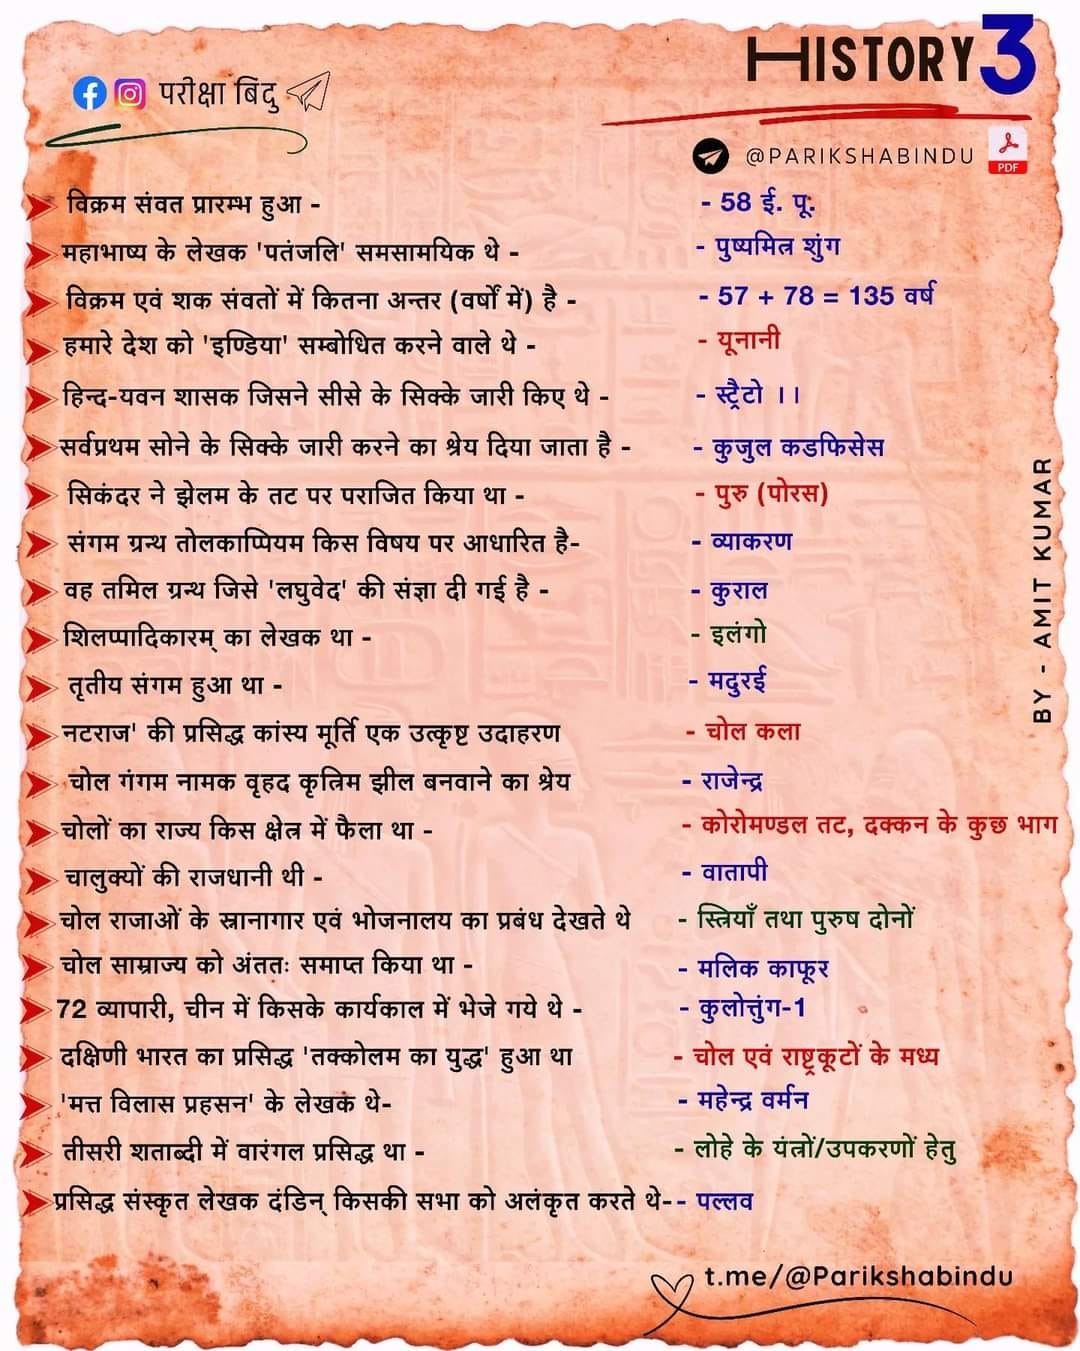 HISTORY 3
परीक्षा बिंदु
@PARIKSHABINDU
PDF
विक्रम संवत प्रारम्भ हुआ - - 58 ई. पू.
महाभाष्य के लेखक 'पतंजलि' समसामयिक थे - - पुष्यमित्र शुंग
विक्रम एवं शक संवतों में कितना अन्तर (वर्षों में) है - - 57 + 78 = 135 वर्ष
हमारे देश को 'इण्डिया' सम्बोधित करने वाले थे - - यूनानी
हिन्द-यवन शासक जिसने सीसे के सिक्के जारी किए थे - - स्ट्रैटो ।।
सर्वप्रथम सोने के सिक्के जारी करने का श्रेय दिया जाता है - - कुजुल कडफिसेस
सिकंदर ने झेलम के तट पर पराजित किया था - - पुरु (पोरस)
संगम ग्रन्थ तोलकाप्पियम किस विषय पर आधारित है- - व्याकरण
वह तमिल ग्रन्थ जिसे 'लघुवेद' की संज्ञा दी गई है - - कुराल
शिलप्पादिकारम् का लेखक था - - इलंगो
तृतीय संगम हुआ था - - मदुरई
नटराज' की प्रसिद्ध कांस्य मूर्ति एक उत्कृष्ट उदाहरण - चोल कला
चोल गंगम नामक वृहद कृत्रिम झील बनवाने का श्रेय - राजेन्द्र
चोलों का राज्य किस क्षेत्र में फैला था - - कोरोमण्डल तट, दक्कन के कुछ भाग
चालुक्यों की राजधानी थी - - वातापी
चोल राजाओं के स्नानागार एवं भोजनालय का प्रबंध देखते थे - स्त्रियाँ तथा पुरुष दोनों
चोल साम्राज्य को अंततः समाप्त किया था - - मलिक काफूर
72 व्यापारी, चीन में किसके कार्यकाल में भेजे गये थे - - कुलोत्तुंग-1
दक्षिणी भारत का प्रसिद्ध 'तक्कोलम का युद्ध' हुआ था - चोल एवं राष्ट्रकूटों के मध्य
'मत्त विलास प्रहसन' के लेखक थे- - महेन्द्र वर्मन
तीसरी शताब्दी में वारंगल प्रसिद्ध था - - लोहे के यंत्रों/उपकरणों हेतु
प्रसिद्ध संस्कृत लेखक दंडिन् किसकी सभा को अलंकृत करते थे- - पल्लव
BY - AMIT KUMAR
t.me/@Parikshabindu